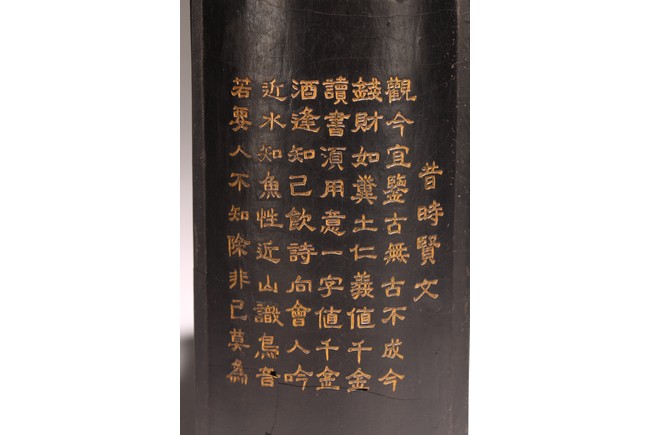 昔時賢文
觀今宜鑒古無古不成今
錢財如糞土仁義值千金
讀書須用意一字值千金
酒逢知己飲詩向會人吟
近水知魚性近山識鳥音
若要人不知除非己莫為